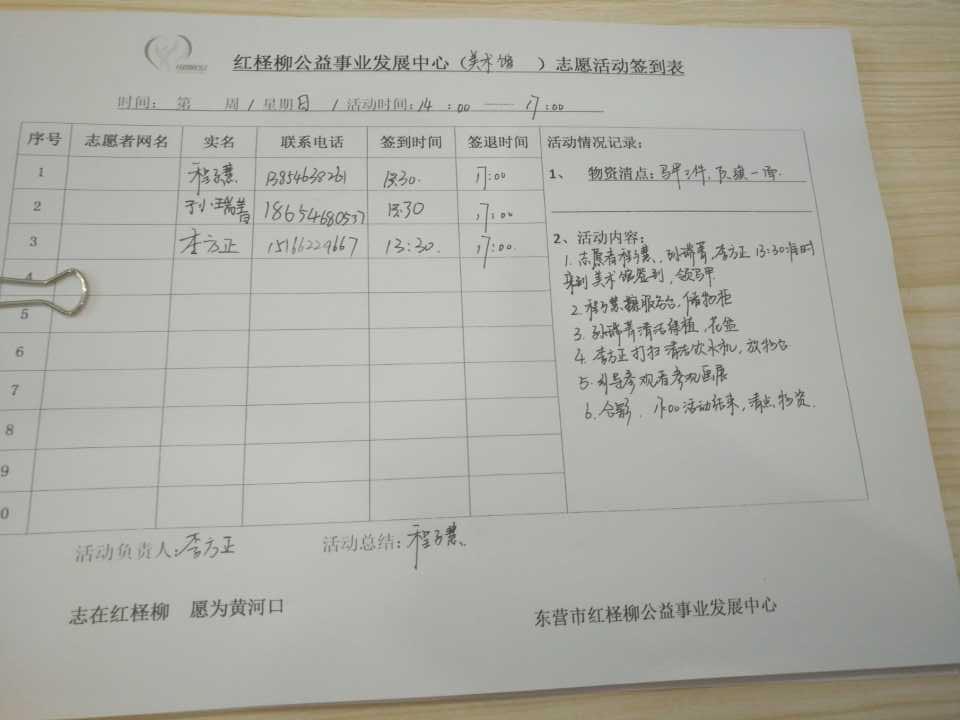 红柽柳公益事业发展中心（美术馆 ）志愿活动签到表
时间：第 周/星期日/活动时间：14:00——17:00
序号 志愿者网名 实名 联系电话 签到时间 签退时间 活动情况记录：
1 程子慧 13854638261 13:30. 17:00
2 孙瑞菁 18654680537 13:30 17:00
3 李方正 15166229667 13:30. 17:00.
4
5
6
7
8
9
0
1、 物资清点：马甲三件，队旗一面.
2、活动内容：
1. 志愿者程子慧、孙瑞菁、李方正 13:30准时
来到美术馆签到，领马甲
2. 程子慧 服务台，储物柜
3. 孙瑞菁清洁绿植，花盆
4. 李方正打扫清洁饮水机，放物台
5. 引导参观者参观画展
6. 合影. 17:00活动结束，清点物资.
活动负责人：李方正 活动总结：程子慧
志在红柽柳 愿为黄河口 东营市红柽柳公益事业发展中心